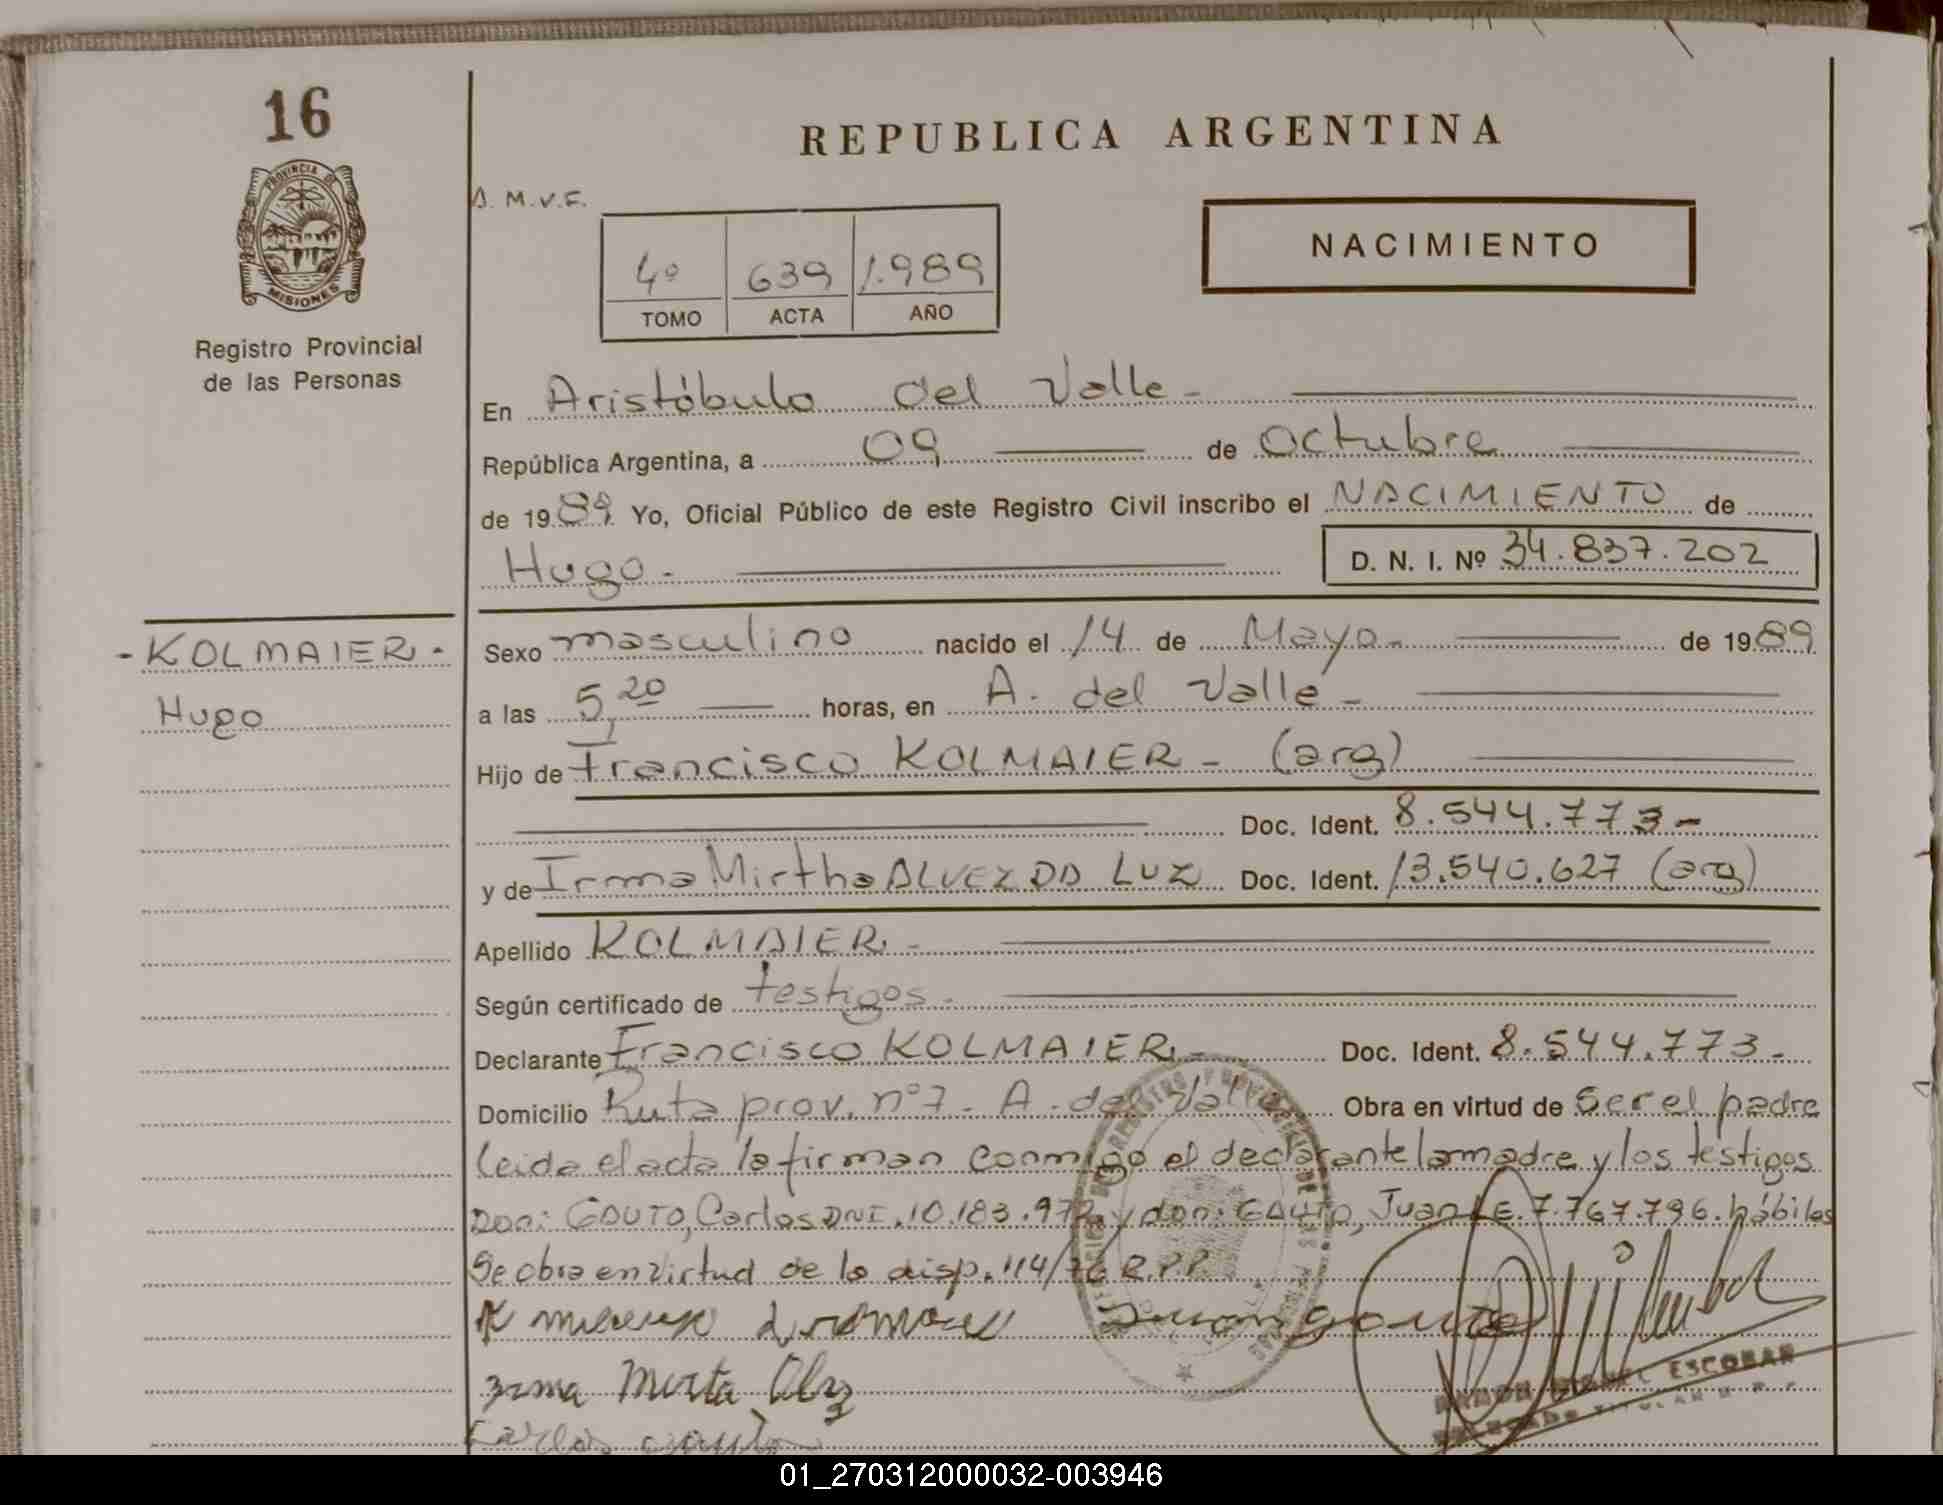 16
PROVINCIA DE
MISIONES
Registro Provincial
de las Personas
REPUBLICA ARGENTINA
A. M.V.F.
4º 639 1.989
TOMO ACTA AÑO
NACIMIENTO
En Aristóbulo del Valle -
República Argentina, a 09 de Octubre
de 1989 Yo, Oficial Público de este Registro Civil inscribo el NACIMIENTO de
Hugo - D. N. I. Nº 34.837.202
- KOLMAIER -
Hugo
Sexo masculino nacido el 14 de Mayo - de 1989
a las 5,20 horas, en A. del Valle -
Hijo de Francisco KOLMAIER - (arg)
Doc. Ident. 8.544.773 -
y de Irma Mirtha ALVEZ DA LUZ Doc. Ident. 13.540.627 (arg)
Apellido KOLMAIER -
Según certificado de testigos -
Declarante Francisco KOLMAIER - Doc. Ident. 8.544.773 -
Domicilio Ruta prov. nº 7 - A. del Valle Obra en virtud de Ser el padre
Leida el acta la firman conmigo el declarante la madre y los testigos
Don: GAUTO, Carlos DNI. 10.183.972 y don: GAUTO, Juan LE. 7.767.796. hábiles
Se obra en virtud de la disp. 114/76 R.P.P.
Juan gauto
Irma Mirta
Carlos gauto
ESCOBAR
01_270312000032-003946